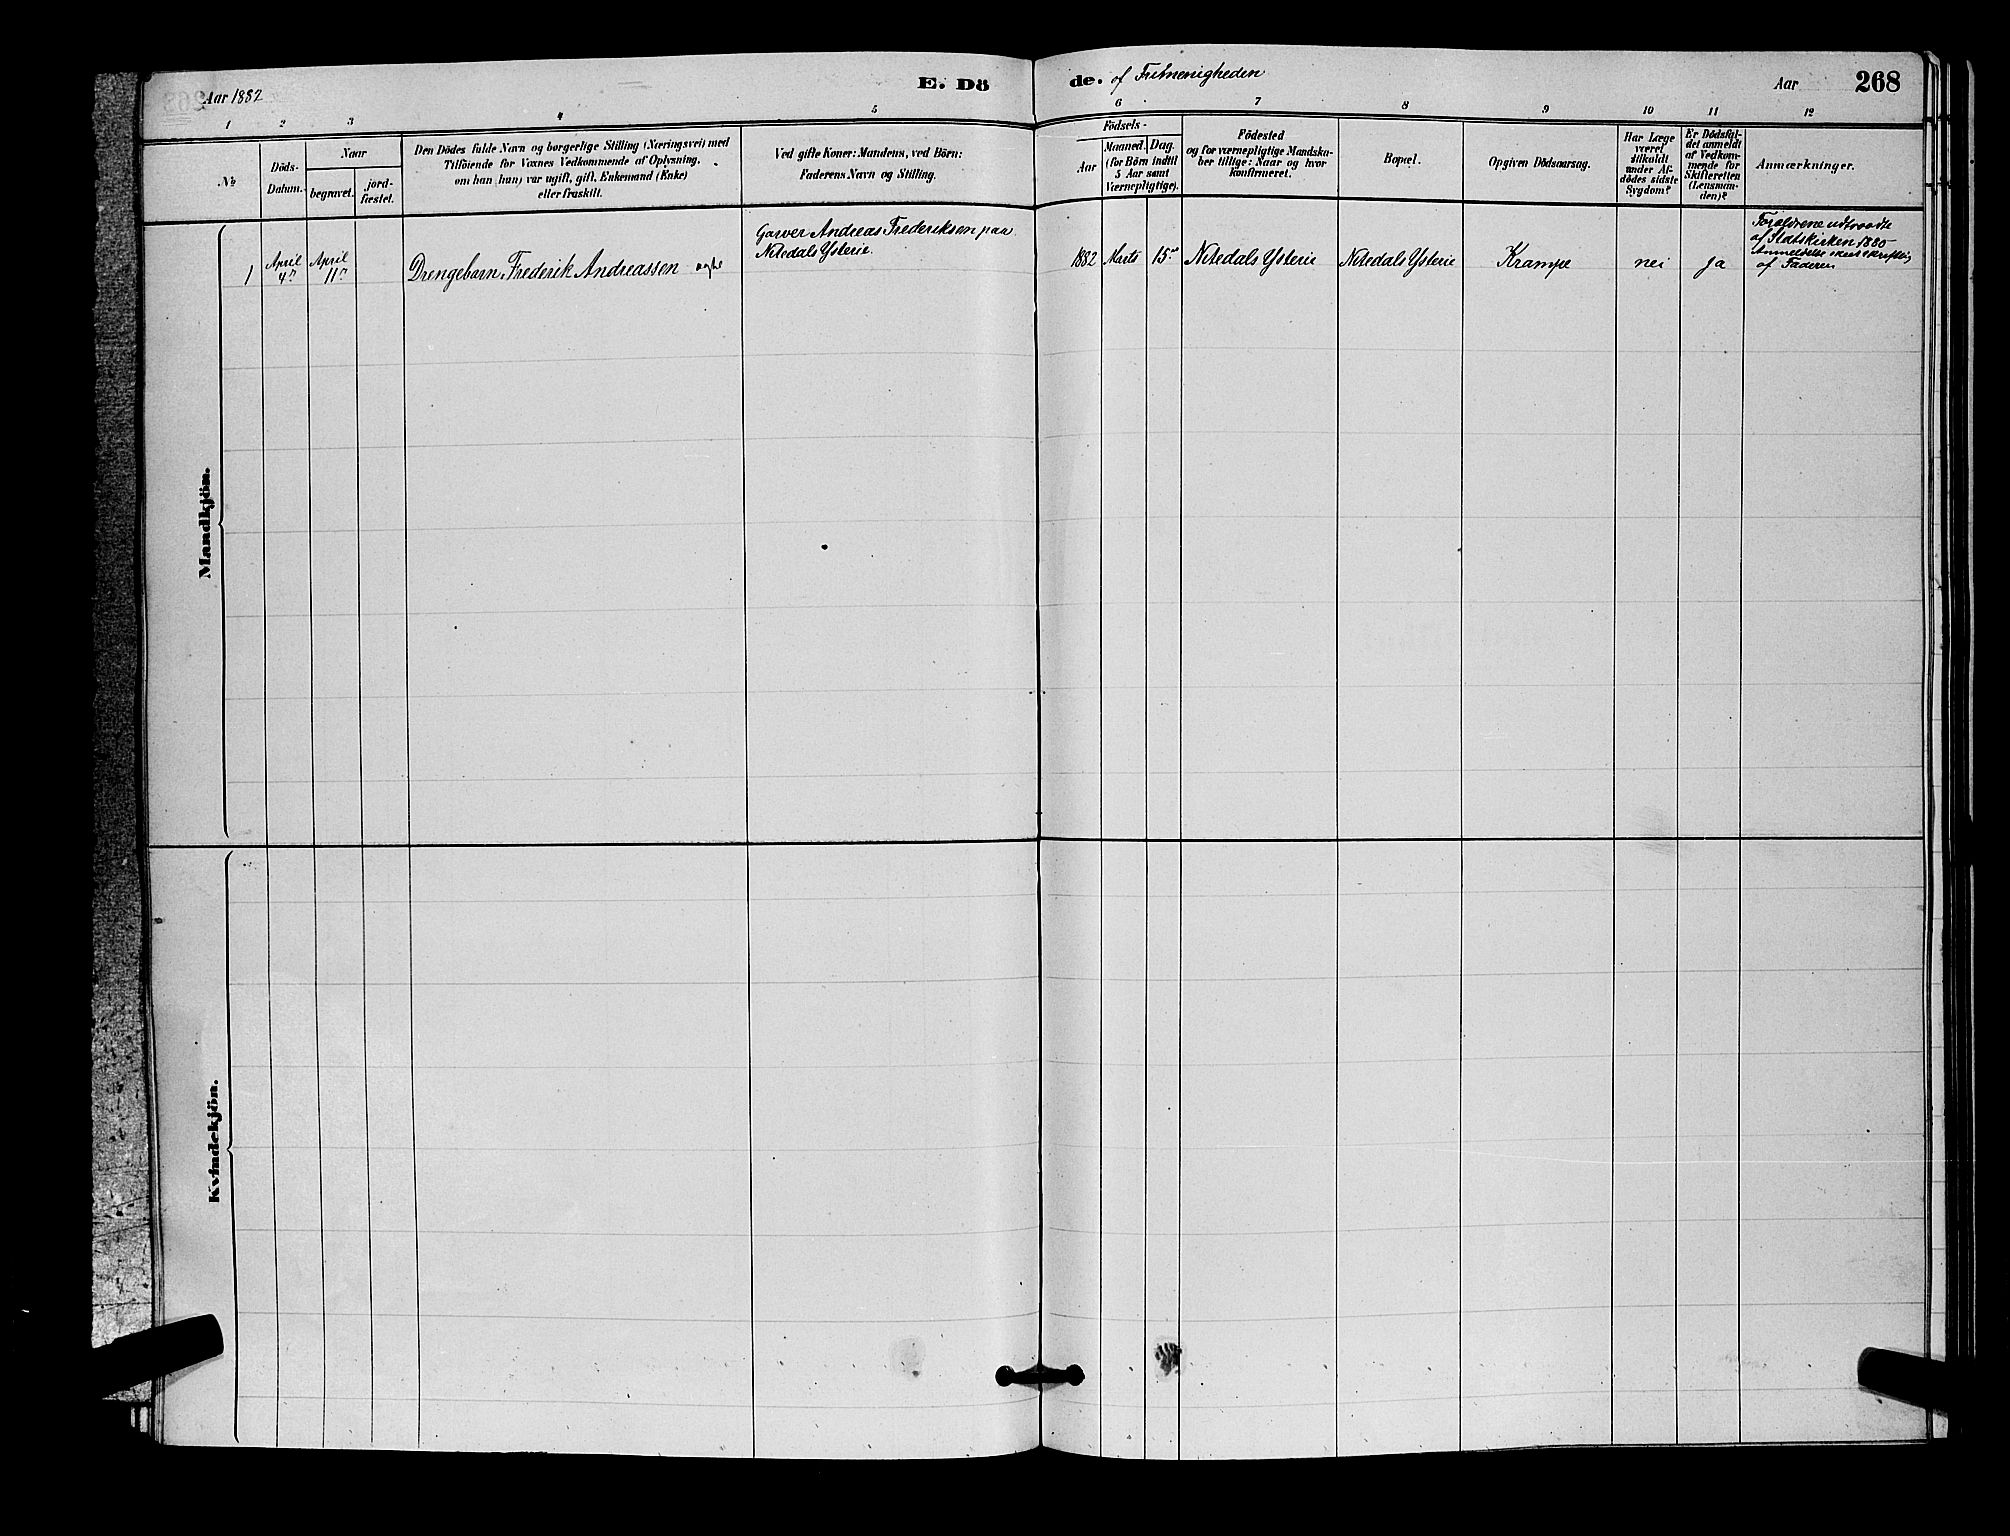 Aar 1882
E. Dö
de. af Frimenigheden
Aar
268
1
2
3
4
5
6
7
8
9
10
11
12
No
Döds-
Datum.
Naar
begravet.
jord-
fæstet.
Den Dödes fulde Navn og borgerlige Stilling (Næringsvei) med
Tilföiende for Voxnes Vedkommende af Oplysning,
om han (hun) var ugift, gift, Enkemand (Enke)
eller fraskilt.
Ved gifte Koner: Mandens, ved Börn:
Faderens Navn og Stilling.
Födsels-
Aar
Maaned.
Dag.
(for Börn indtil
5 Aar samt
Værnepligtige).
Födested
og for værnepligtige Mandska-
ber tillige: Naar og hvor
konfirmeret.
Bopæl.
Opgiven Dödsaarsag.
Har Læge
været
tilkaldt
under Af-
dödes sidste
Sygdom?
Er Dödsfal-
det anmeldt
af Vedkom-
mende for
Skifteretten
(Lensman-
den)?
Anmærkninger.
Mandkjön.
1
April
4de
April
11te
Drengebarn, Frederik Andreassen ægte
Garver Andreas Frederiksen paa
Nitedals Ysterie.
1882
Marts
15de
Nitedals Ysterie
Nitedals Ysterie
Krampe
nei
Ja
Forældrene udtraadte
af Statskirken 1880
Anmeldelse skeet skriftlig
af Faderen
Kvindekjön.